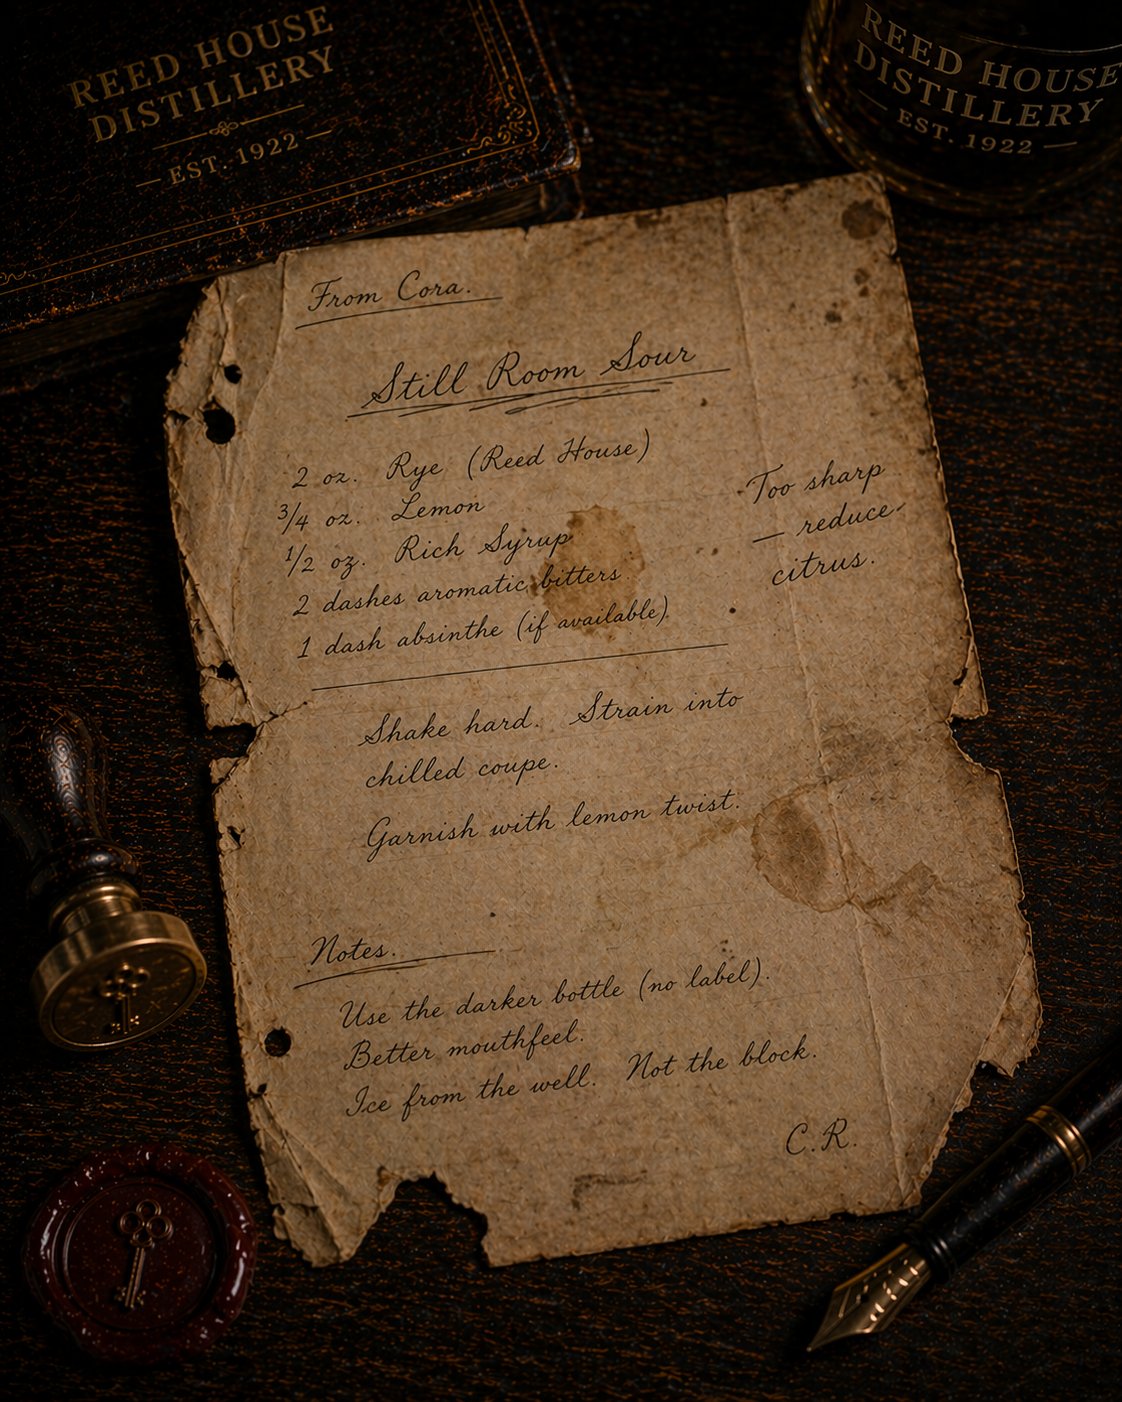 REED HOUSE
DISTILLERY
— EST. 1922 —
REED HOUSE
DISTILLERY
— EST. 1922 —
From Cora.
Still Room Sour
2 oz. Rye (Reed House)
3/4 oz. Lemon
1/2 oz. Rich Syrup
2 dashes aromatic bitters
1 dash absinthe (if available)
Too sharp
— reduce
citrus.
Shake hard. Strain into
chilled coupe.
Garnish with lemon twist.
Notes.
Use the darker bottle (no label).
Better mouthfeel.
Ice from the well. Not the block.
C.R.